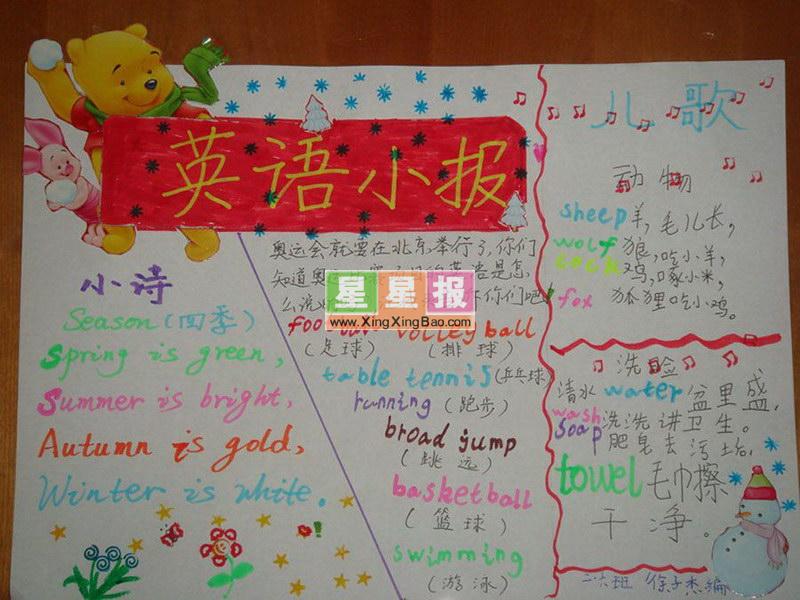 英语小报
小诗
Season(四季)
Spring is green,
Summer is bright,
Autumn is gold,
Winter is white。
奥运会就要在北京举行了,你们
知道奥运
么说
你们吧!
星星报
www.XingXingBao.com
volleyball
(足球) (排球)
table tennis(乒乓球)
running(跑步)
broad jump
(跳远)
basketball
(篮球)
swimming
(游泳)
儿歌
动物
sheep羊,毛儿长,
wolf狼,吃小羊,
cock鸡,啄小米,
fox 狐狸吃小鸡。
洗脸
清水water盆里盛,
wash洗洗讲卫生。
soap肥皂去污垢,
towel毛巾擦
干净。
二六班 徐子杰编